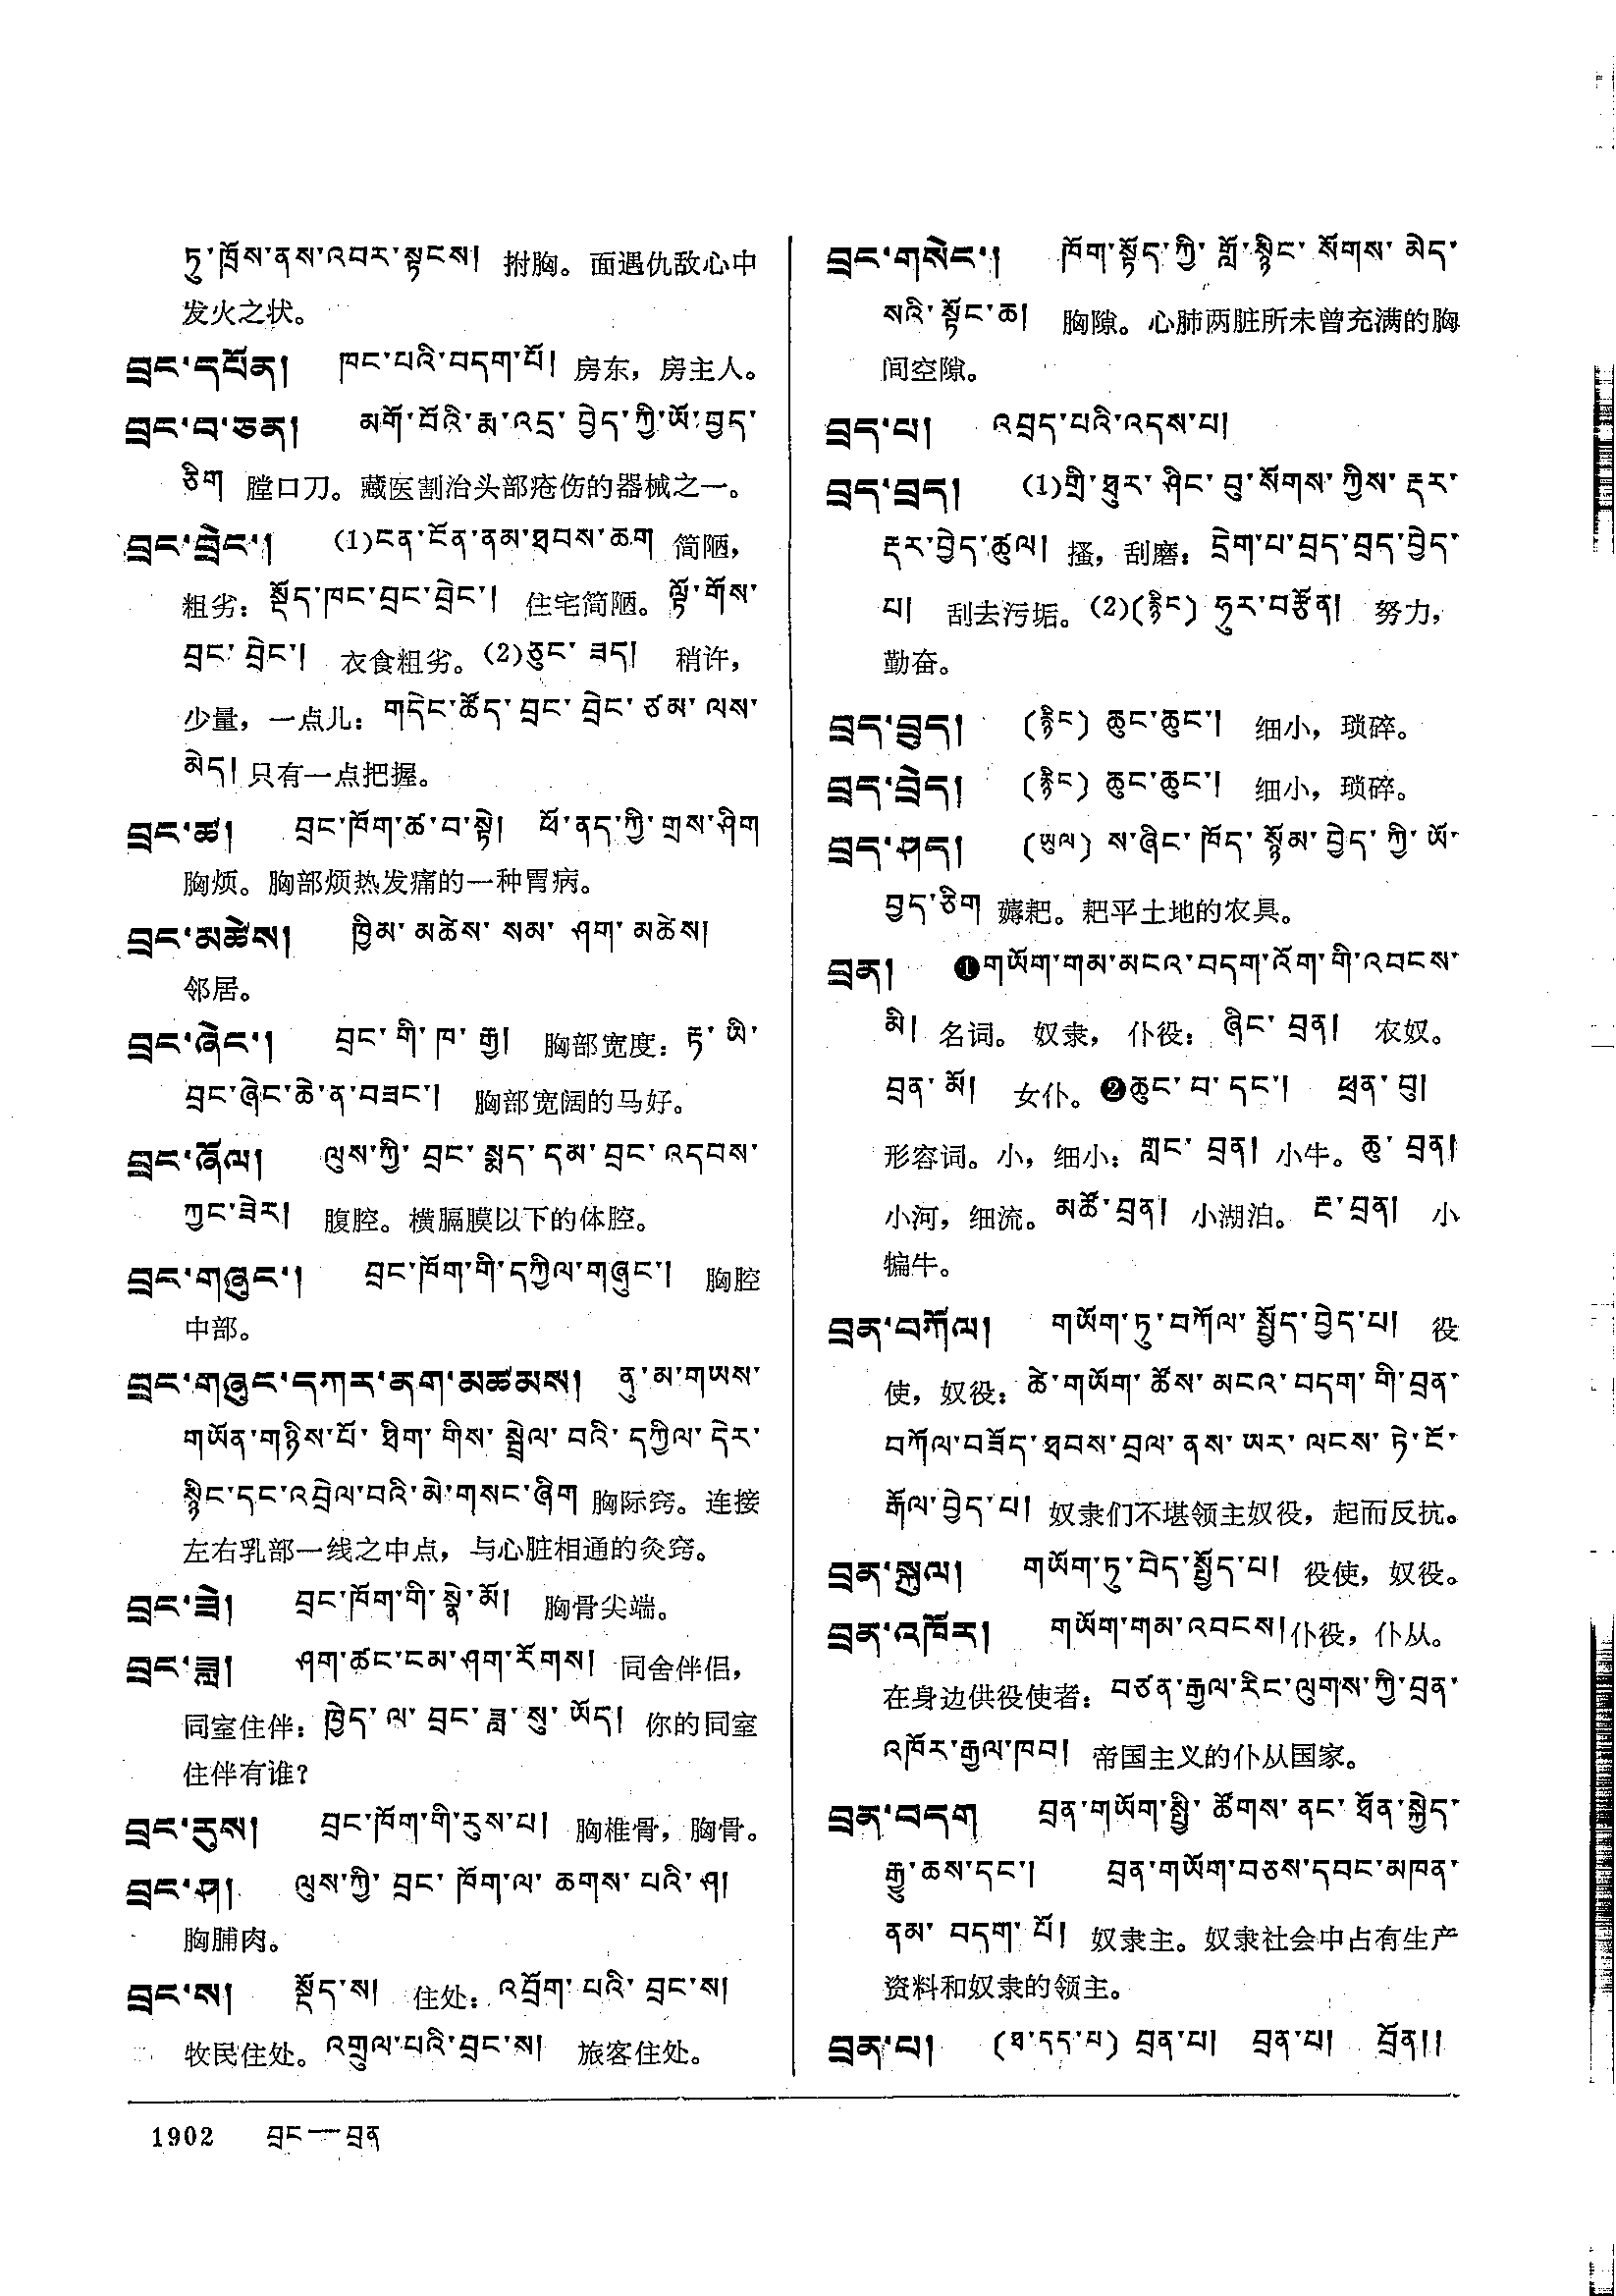 ཏུ་ཁྲོས་ནས་འབར་སྟངས། 拊胸。面遇仇敌心中
发火之状。
བྲང་དཔོན། ཁང་པའི་བདག་པོ། 房东，房主人。
བྲང་བ་ཅན། མགོ་བོའི་རྨ་འདྲ་བྱེད་ཀྱི་ཡོ་བྱད་
ཅིག 膛口刀。藏医割治头部疮伤的器械之一。
བྲང་བྲེང་། (1)ངན་ངོན་ནམ་ཐབས་ཆག 简陋，
粗劣：སྡོད་ཁང་བྲང་བྲེང་། 住宅简陋。ལྟོ་གོས་
བྲང་བྲེང་། 衣食粗劣。(2)ཅུང་ཟད། 稍许，
少量，一点儿：གདེང་ཚོད་བྲང་བྲེང་ཙམ་ལས་
མེད། 只有一点把握。
བྲང་ཚ། བྲང་ཁོག་ཚ་བ་སྟེ། ཕོ་ནད་ཀྱི་གྲས་ཤིག
胸烦。胸部烦热发痛的一种胃病。
བྲང་མཚེས། ཁྱིམ་མཚེས་སམ་ཤག་མཚེས།
邻居。
བྲང་ཞེང་། བྲང་གི་ཁ་རྒྱ། 胸部宽度：རྟ་ཡི་
བྲང་ཞེང་ཆེ་ན་བཟང་། 胸部宽阔的马好。
བྲང་ཞོལ། ལུས་ཀྱི་བྲང་སྨད་དམ་བྲང་འདབས་
ཀྱང་ཟེར། 腹腔。横膈膜以下的体腔。
བྲང་གཞུང་། བྲང་ཁོག་གི་དཀྱིལ་གཞུང་། 胸腔
中部。
བྲང་གཞུང་དཀར་ནག་མཚམས། ནུ་མ་གཡས་
གཡོན་གཉིས་པོ་ཐིག་གིས་སྦྲེལ་བའི་དཀྱིལ་དེར་
སྙིང་དང་འབྲེལ་བའི་མེ་གསང་ཞིག 胸际窍。连接
左右乳部一线之中点，与心脏相通的灸窍。
བྲང་ཟེ། བྲང་ཁོག་གི་སྣེ་མོ། 胸骨尖端。
བྲང་ཟླ། ཤག་ཚང་ངམ་ཤག་རོགས། 同舍伴侣，
同室住伴：ཁྱེད་ལ་བྲང་ཟླ་སུ་ཡོད། 你的同室
住伴有谁？
བྲང་རུས། བྲང་ཁོག་གི་རུས་པ། 胸椎骨，胸骨。
བྲང་ཤ། ལུས་ཀྱི་བྲང་ཁོག་ལ་ཆགས་པའི་ཤ།
胸脯肉。
བྲང་ས། སྡོད་ས། 住处：འབྲོག་པའི་བྲང་ས།
牧民住处。འགྲུལ་པའི་བྲང་ས། 旅客住处。
བྲང་གསེང་། ཁོག་སྟོད་ཀྱི་གློ་སྙིང་སོགས་མེད་
སའི་སྟོང་ཆ། 胸隙。心肺两脏所未曾充满的胸
间空隙。
བྲད་པ། འབྲད་པའི་འདས་པ།
བྲད་བྲད། (1)གྲི་ཐུར་ཤིང་བུ་སོགས་ཀྱིས་རྡར་
རྡར་བྱེད་ཚུལ། 搔，刮磨：དྲེག་པ་བྲད་བྲད་བྱེད་
པ། 刮去污垢。(2)(རྙིང) ཧུར་བརྩོན། 努力，
勤奋。
བྲད་བྲུད། (རྙིང) ཆུང་ཆུང་། 细小，琐碎。
བྲད་བྲེད། (རྙིང) ཆུང་ཆུང་། 细小，琐碎。
བྲད་ཤད། (ཡུལ) ས་ཞིང་ཁོད་སྙོམ་བྱེད་ཀྱི་ཡོ་
བྱད་ཅིག 薅耙。耙平土地的农具。
བྲན། ❶གཡོག་གམ་མངའ་བདག་འོག་གི་འབངས་
མི། 名词。奴隶，仆役：ཞིང་བྲན། 农奴。
བྲན་མོ། 女仆。❷ཆུང་བ་དང་། ཕྲན་བུ།
形容词。小，细小：གླང་བྲན། 小牛。ཆུ་བྲན།
小河，细流。མཚོ་བྲན། 小湖泊。ང་བྲན། 小
犏牛。
བྲན་བཀོལ། གཡོག་ཏུ་བཀོལ་སྤྱོད་བྱེད་པ། 役
使，奴役：ཚེ་གཡོག་ཚོས་མངའ་བདག་གི་བྲན་
བཀོལ་བཟོད་ཐབས་བྲལ་ནས་ཡར་ལངས་ཏེ་ངོ་
རྒོལ་བྱེད་པ། 奴隶们不堪领主奴役，起而反抗。
བྲན་སྐུལ། གཡོག་ཏུ་བེད་སྤྱོད་པ། 役使，奴役。
བྲན་འཁོར། གཡོག་གམ་འབངས། 仆役，仆从。
在身边供役使者：བཙན་རྒྱལ་རིང་ལུགས་ཀྱི་བྲན་
འཁོར་རྒྱལ་ཁབ། 帝国主义的仆从国家。
བྲན་བདག བྲན་གཡོག་སྤྱི་ཚོགས་ནང་ཐོན་སྐྱེད་
རྒྱུ་ཆས་དང་། བྲན་གཡོག་བཅས་དབང་མཁན་
ནམ་བདག་པོ། 奴隶主。奴隶社会中占有生产
资料和奴隶的领主。
བྲན་པ། (ཐ་དད་པ) བྲན་པ། བྲན་པ། བྲོན།།
1902 བྲང—བྲན